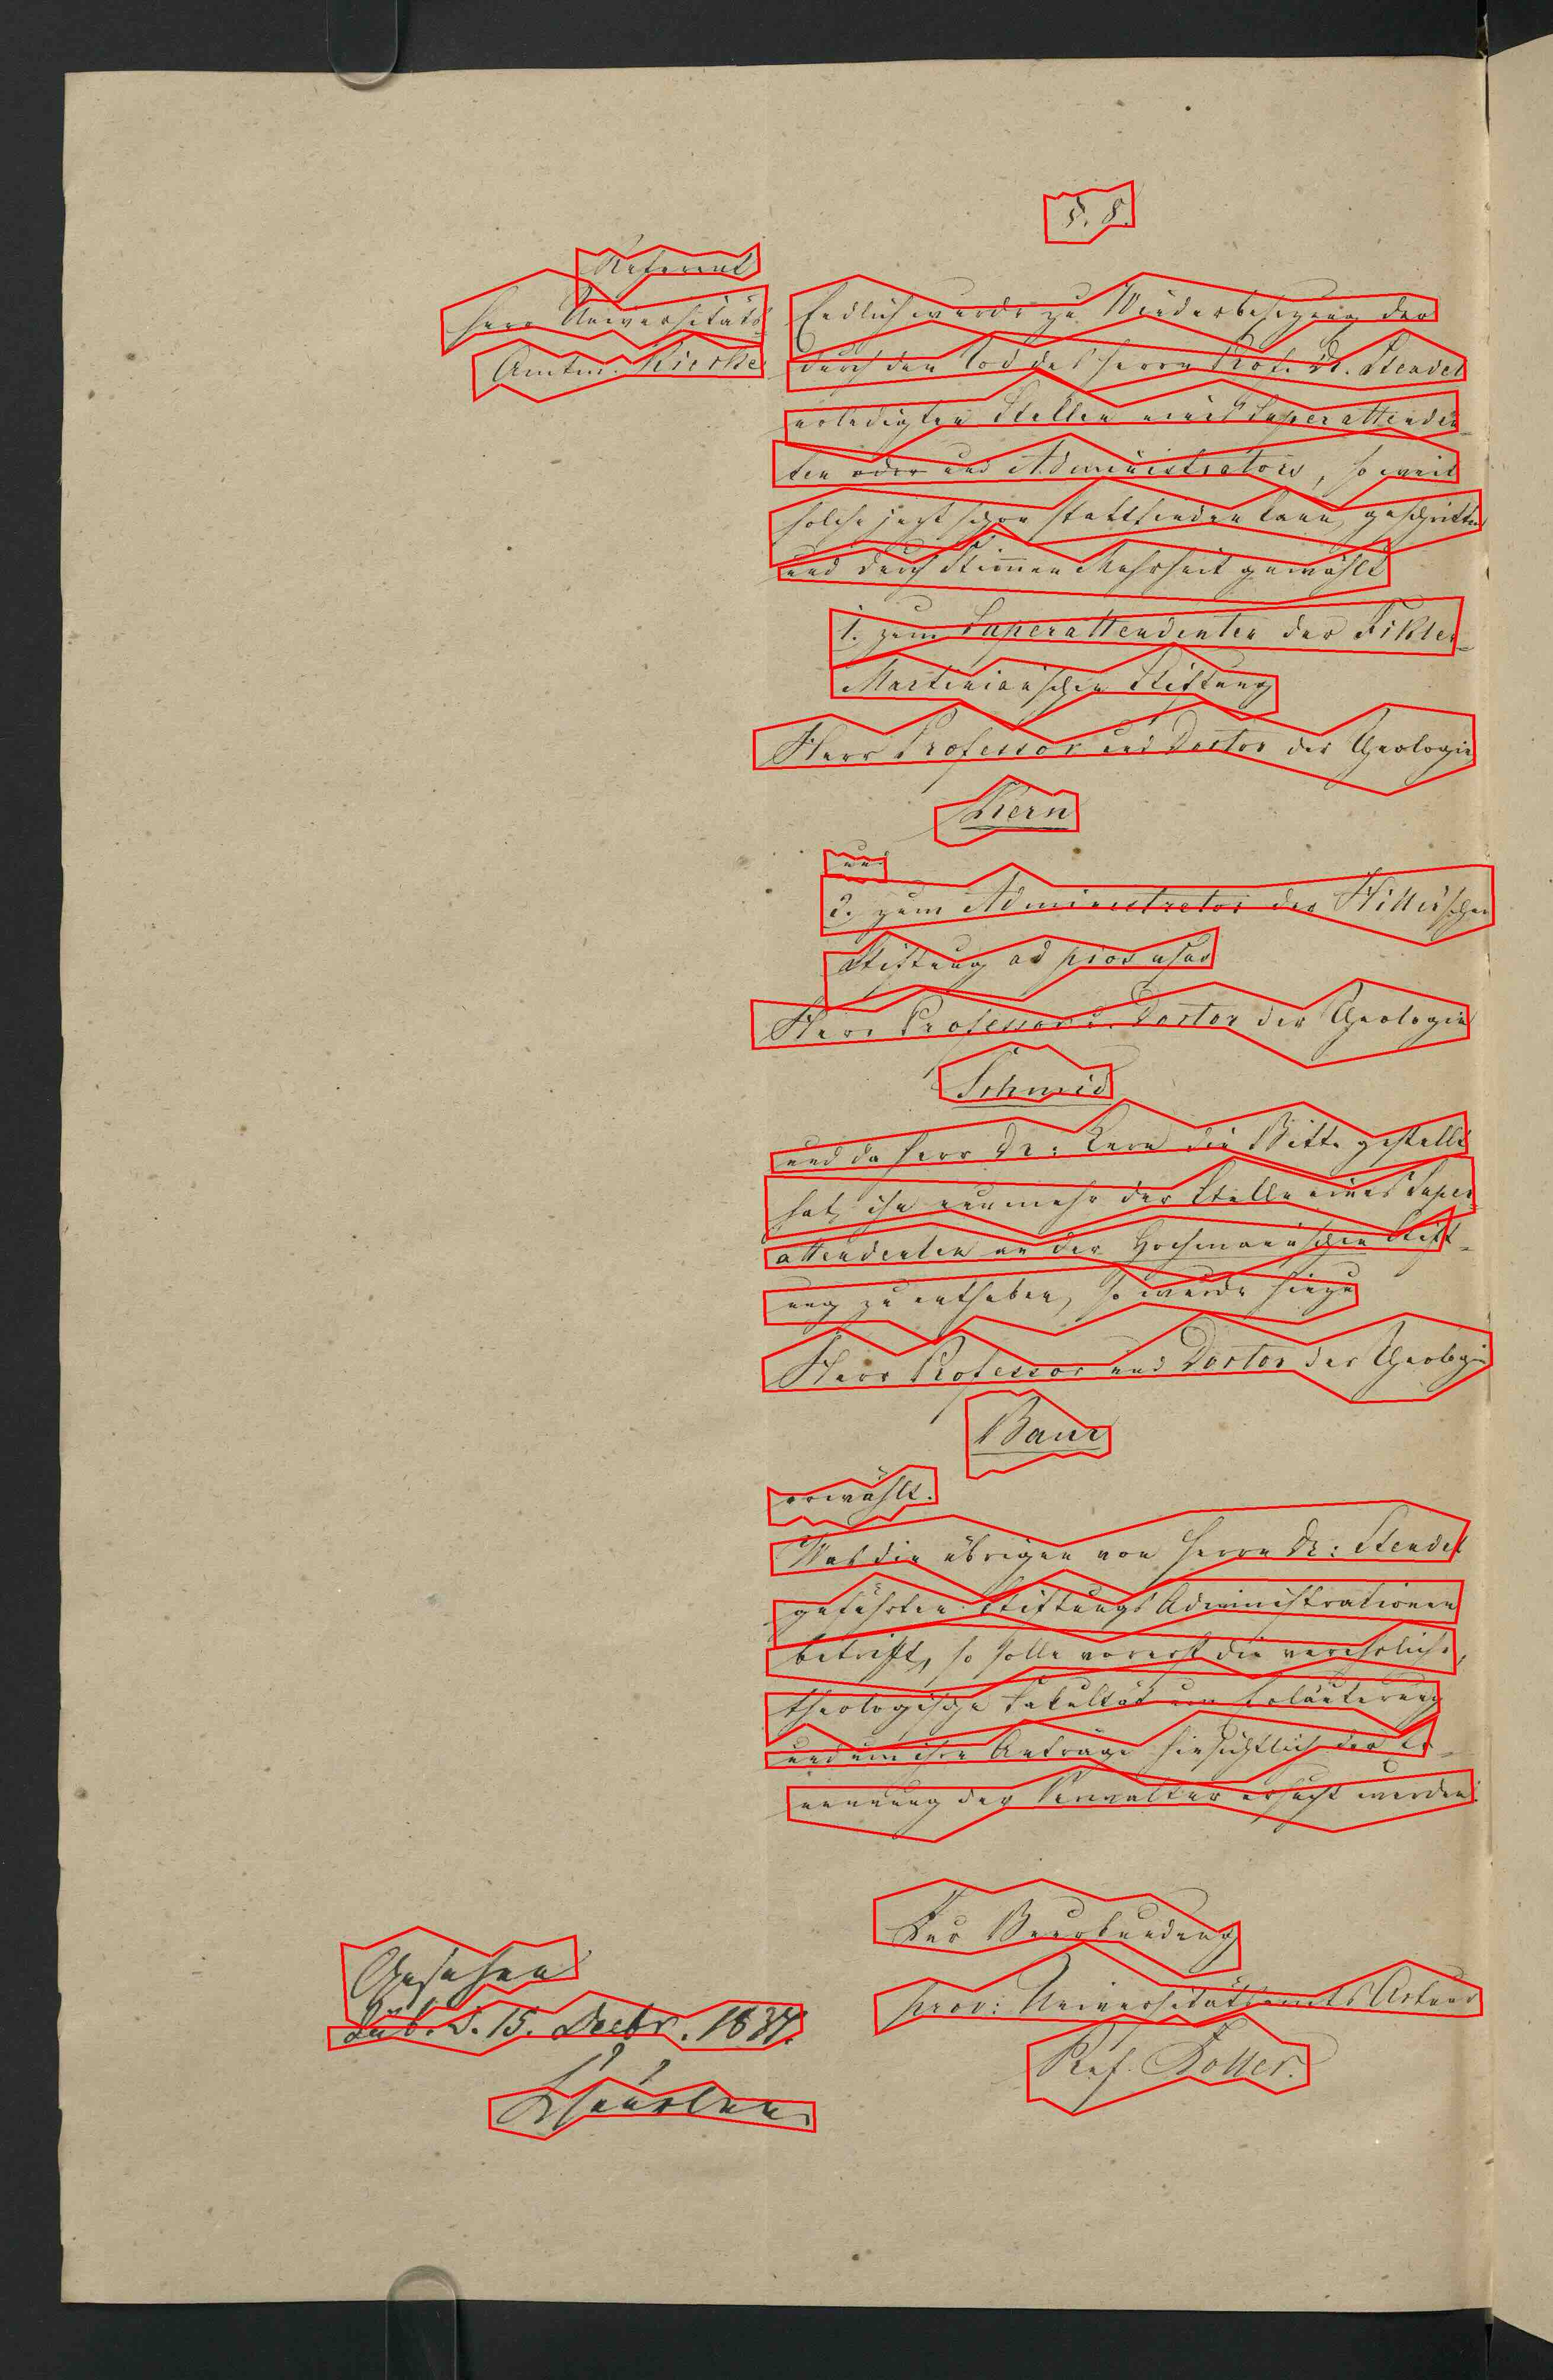 §. 8.
Referent
Herr Universitäts
Amtm. Kierke
Endlich wurde zu Wiederbesezung der
durch den Tod des Herrn Prof. Dr. Steudel
erledigten Stellen eines Superattenden¬
ten oder und Administrators, so weit
solche jezt schon stattfinden kann, geschritten
und durch Stimmen Mehrheit gewählt
1. zum Superattendenten der Fikler¬
Martinianischen Stiftung
Herr Professor und Doctor der Theologie
Kern
und
2. zum Administrator der Hiller'schen
Stiftung ad pios usus
Herr Professor u. Doctor der Theologie
Schmid
und da Herr Dr: Kern die Bitte gestellt
hat, ihn nunmehr der Stelle eines Super
attendenten an der Hochmannischen Stift¬
ung zu entheben, so wurde hiezu
Herr Professor und Doctor der Theologie
Baur
erwählt.
Was die übrigen von Herrn Dr: Steudel
geführten Stiftungs Administrationen
betrifft, so solle vorerst die verehrliche,
theologische Fakultät um Erläuterung
und um ihre Anträge hinsichtlich der Er¬
nennung der Verwalter ersucht werden.
Zur Beurkundung
prov: Universitätsamts Actuar
Ref. Zoller.
Gesehen
Tüb. d. 15. Decbr. 1837.